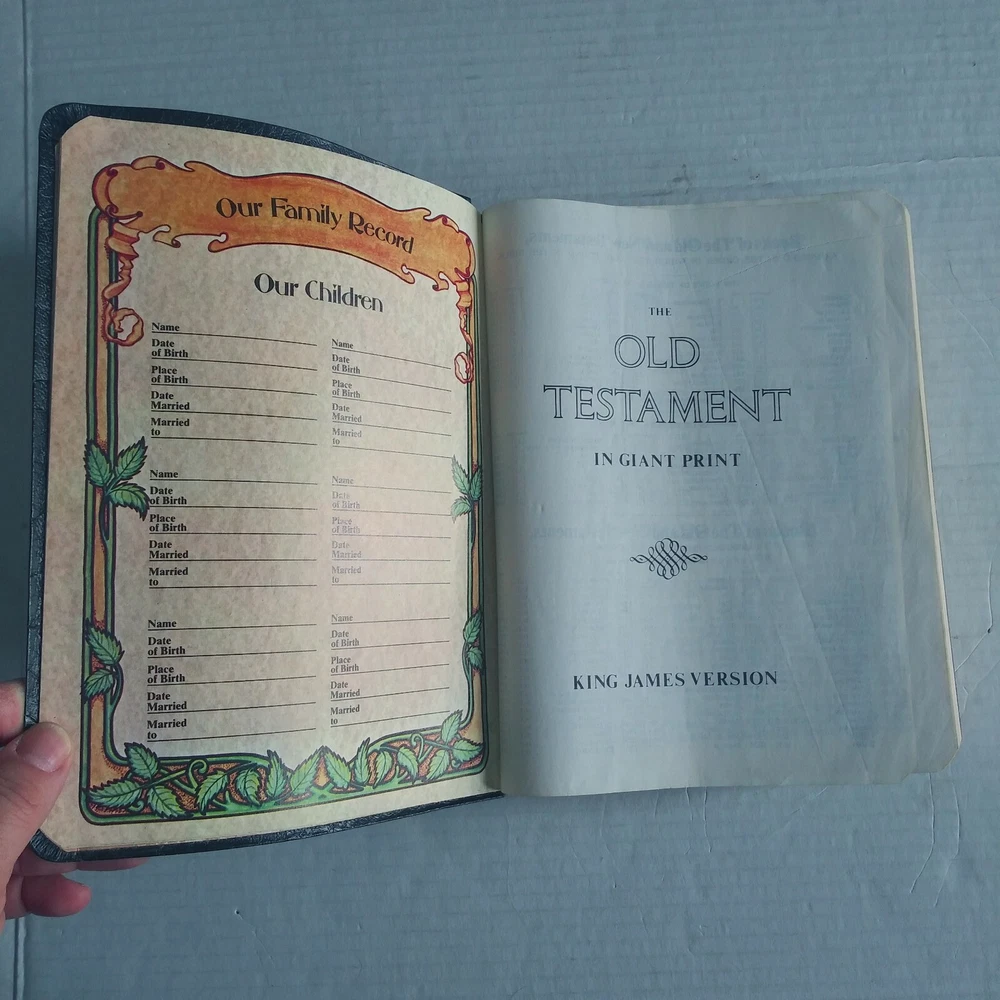 Our Family Record
Our Children
Name
Date
of Birth
Place
of Birth
Date
Married
Married
to
Name
Date
of Birth
Place
of Birth
Date
Married
Married
to
Name
Date
of Birth
Place
of Birth
Date
Married
Married
to
Name
Date
of Birth
Place
of Birth
Date
Married
Married
to
Name
Date
of Birth
Place
of Birth
Date
Married
Married
to
Name
Date
of Birth
Place
of Birth
Date
Married
Married
to
THE
OLD
TESTAMENT
IN GIANT PRINT
KING JAMES VERSION